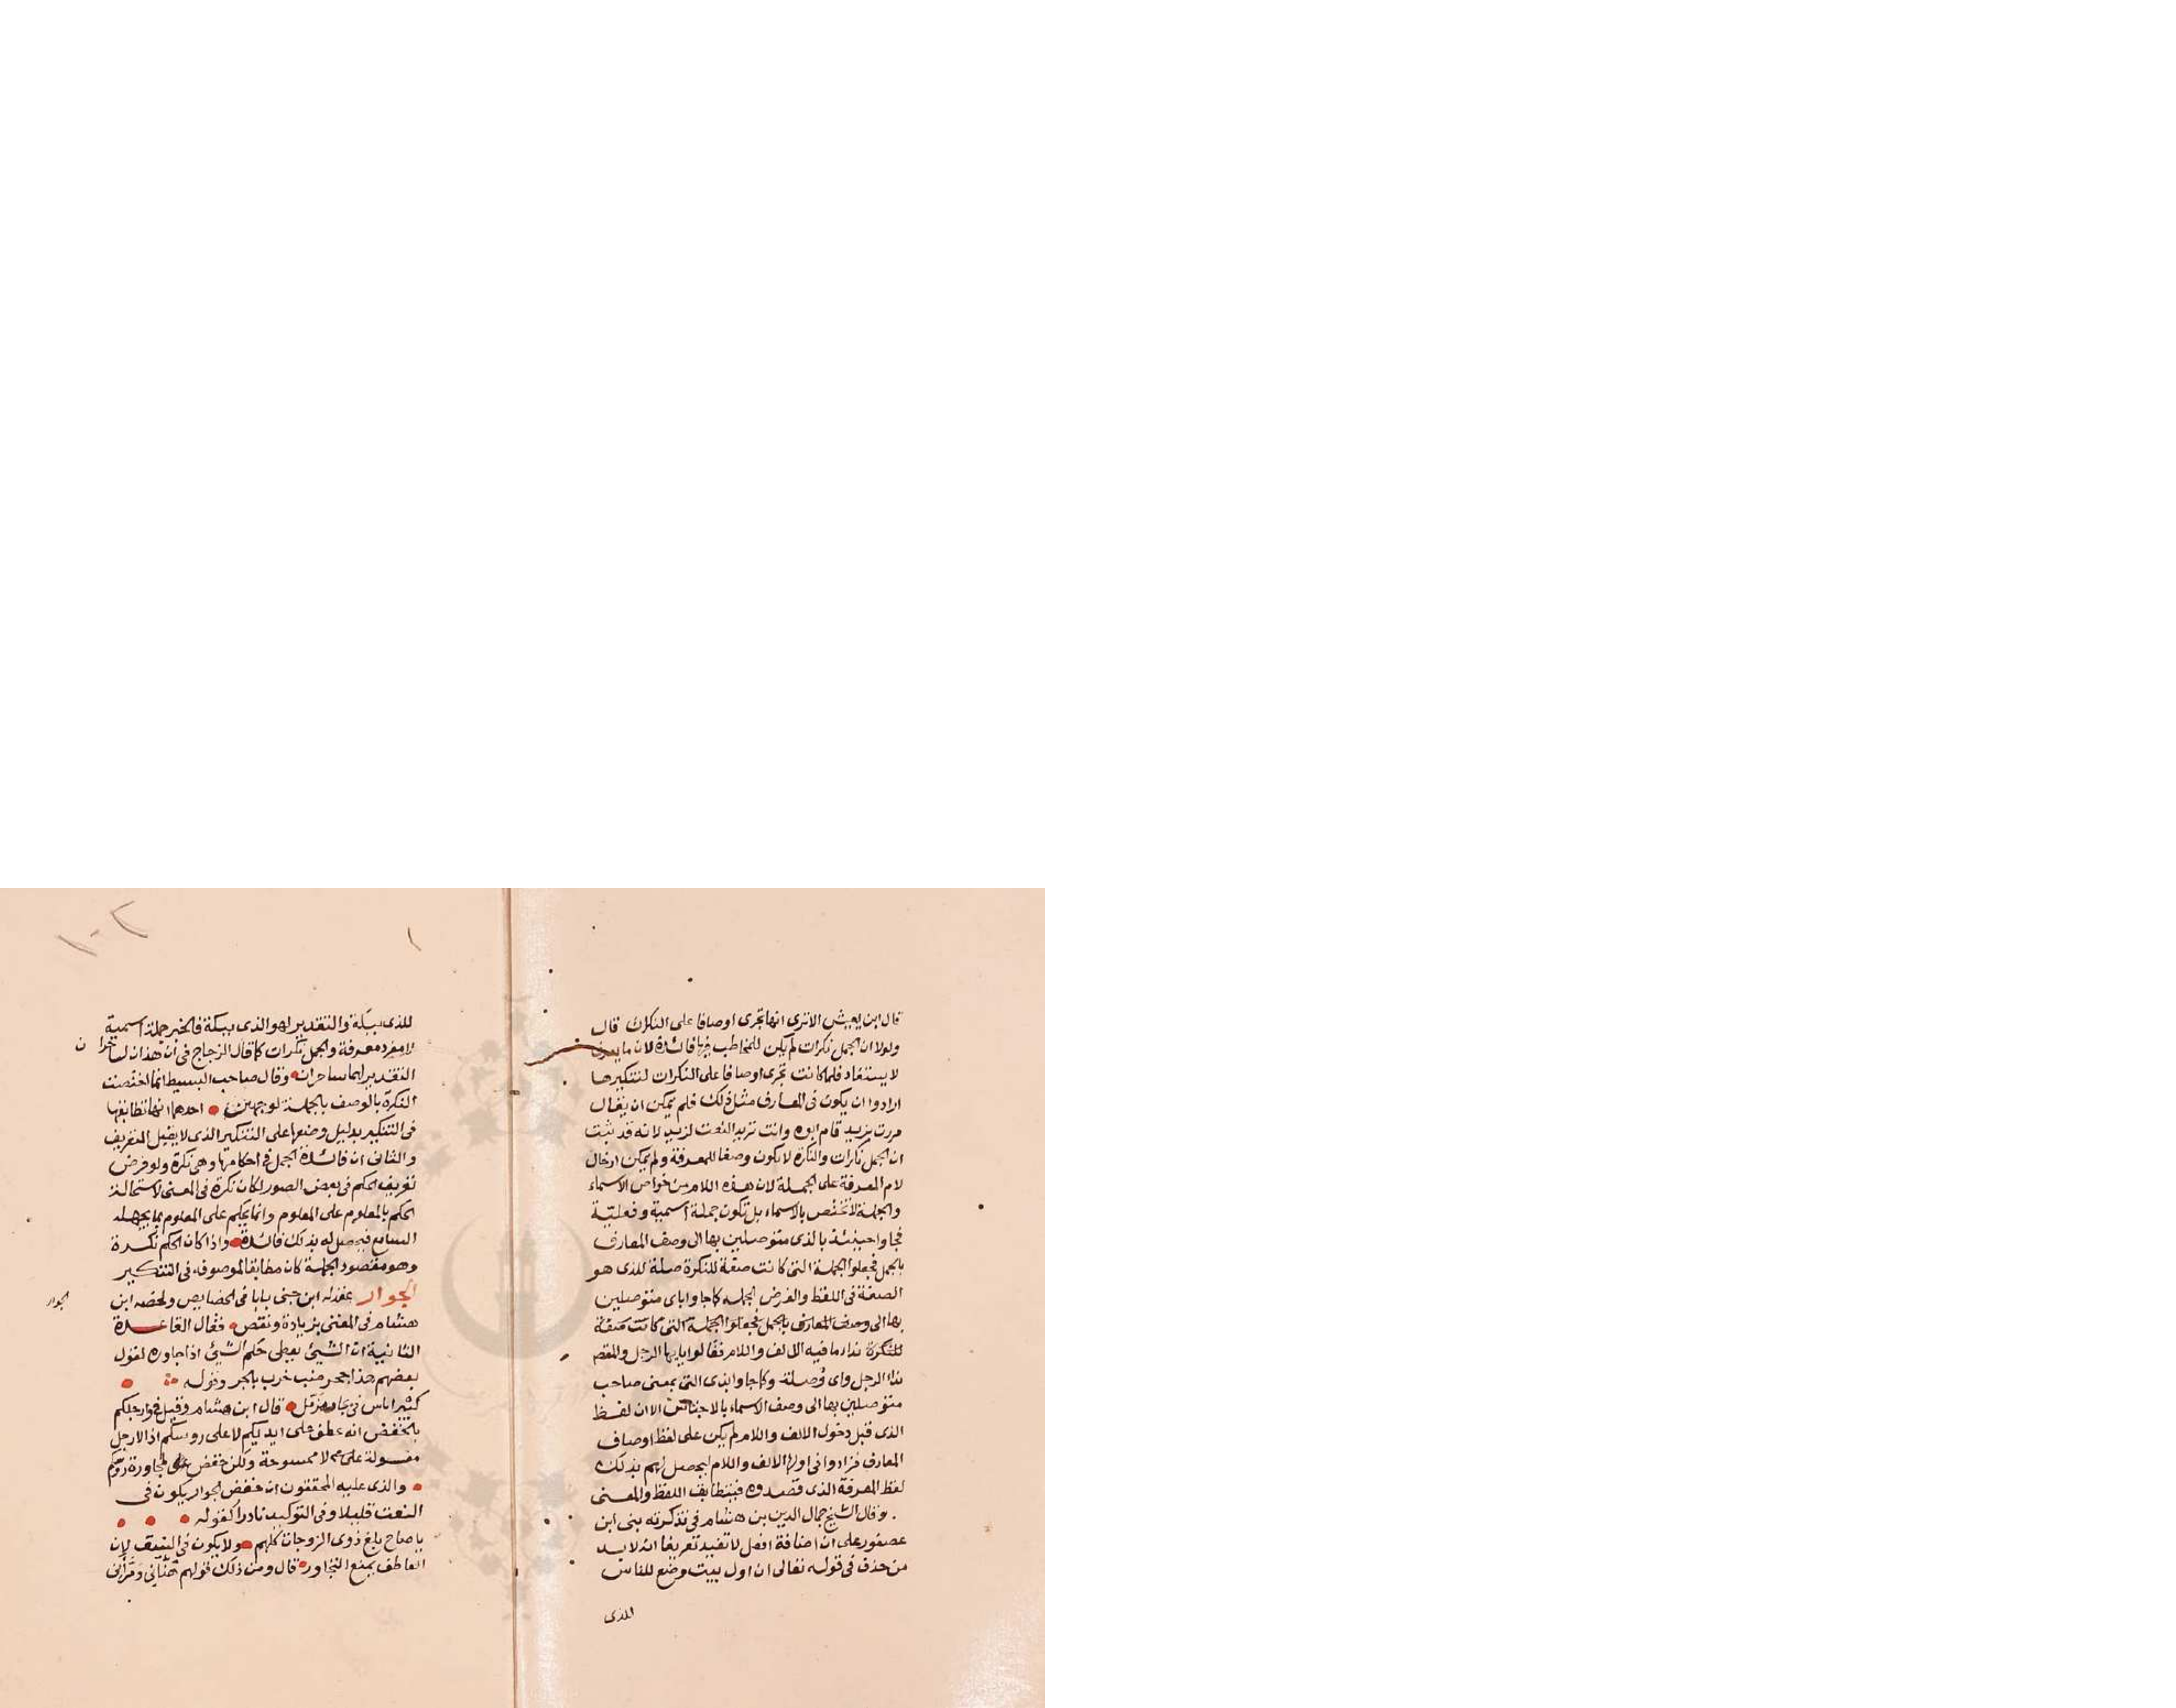 قال ابن يعيش الا ترى انها تجرى اوصافا على النكرات قال
ولولا ان الجمل نكرات لم يكن للمخاطب فيها فائدة لان ما يعرف
لا يستفاد فلما كانت تجرى اوصافا على النكرات لتنكيرها
ارادوا ان يكون فى المعارف مثل ذلك فلم يمكن ان يقال
مررت بزيد قام ابوه وانت تريد النعت لزيد لانه قد ثبت
ان الجمل نكرات والنكرة لا يكون وصفا للمعرفة ولم يمكن ادخال
لام المعرفة على الجملة لان هذه اللام من خواص الاسماء
والجملة لا تختص بالاسماء بل تكون جملة اسمية وفعلية
فجاوا حينئذ بالذى متوصلين بها الى وصف المعارف
بالجمل فجعلوا الجملة التى كانت صفة للنكرة صلة للذى هو
الصفة فى اللفظ والغرض الجمله كما جاوا باى متوصلين
بها الى وصف المعارف بالجمل فجعلوا الجملة التى كانت صفة
للنكرة نداء ما فيه الالف واللام فقالوا يايها الرجل والمقصد
نداء الرجل واى وصلة وكما جاوا بذى التى بمعنى صاحب
متوصلين بها الى وصف الاسماء بالاجناس الا ان لفظ
الذى قبل دخول الالف واللام لم يكن على لفظ اوصاف
المعارف فزادوا فى اولها الالف واللام ليحصل لهم بذلك
لفظ المعرفة الذى قصدوه فيتطابق اللفظ والمعنى
وقال الشيخ جمال الدين بن هشام فى تذكرته بنى ابن
عصفور على ان اضافة افعل لا تفيد تعريفا انه لا بد
من حذف فى قوله تعالى ان اول بيت وضع للناس
للذى
للذى ببكة والتقدير لهو الذى ببكة فالخبر جملة اسمية
لا مفرد معرفة والجمل نكرات كما قال الزجاج فى ان هذان لساحران
التقدير لهما ساحران وقال صاحب البسيط انما اختصت
النكرة بالوصف بالجملة لوجهين احدهما انها تطابقها
فى التنكير بدليل وضعها على التنكير الذى لا يقبل التعريف
والثانى ان فائدة الجمل فى احكامها وهى نكرة ولو فرض
تعريف الحكم فى بعض الصور لكان نكرة فى المعنى لاستحالة
الحكم بالمعلوم على المعلوم وانما يحكم على المعلوم بما يجهله
السامع فيحصل له بذلك فائدة واذا كان الحكم نكرة
وهو مقصود الجملة كان مطابقا للموصوف فى التنكير
الجوار
الجوار عقد له ابن جنى بابا فى الخصايص ولخصه ابن
هشام فى المغنى بزيادة ونقص فقال القاعدة
الثانية ان الشيئ يعطى حكم الشيئ اذا جاوره لقول
بعضهم هذا جحر ضب خرب بالجر وقوله
كبير اناس فى بجاد مزمل قال ابن هشام وقيل فى وارجلكم
بالخفض انه عطف على ايديكم لا على روسكم اذ الارجل
مغسولة لا ممسوحة ولكن خفض على مجاورة روسكم
والذى عليه المحققون ان خفض الجوار يكون فى
النعت قليلا وفى التوكيد نادرا كقوله
يا صاح بلغ ذوى الزوجات كلهم ولا يكون فى النسق لان
العاطف يمنع التجاور قال ومن ذلك قولهم هنأنى ومرأنى